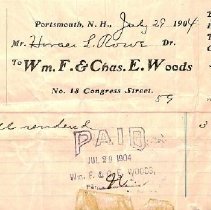 Portsmouth, N. H., July 29 1904
Mr. Horace L. Rowe Dr.
To Wm. F. & Chas. E. Woods
No. 18 Congress Street.
59
rendered 3
PAID
JUL 29 1904
Wm. F. & C. E. WOODS,